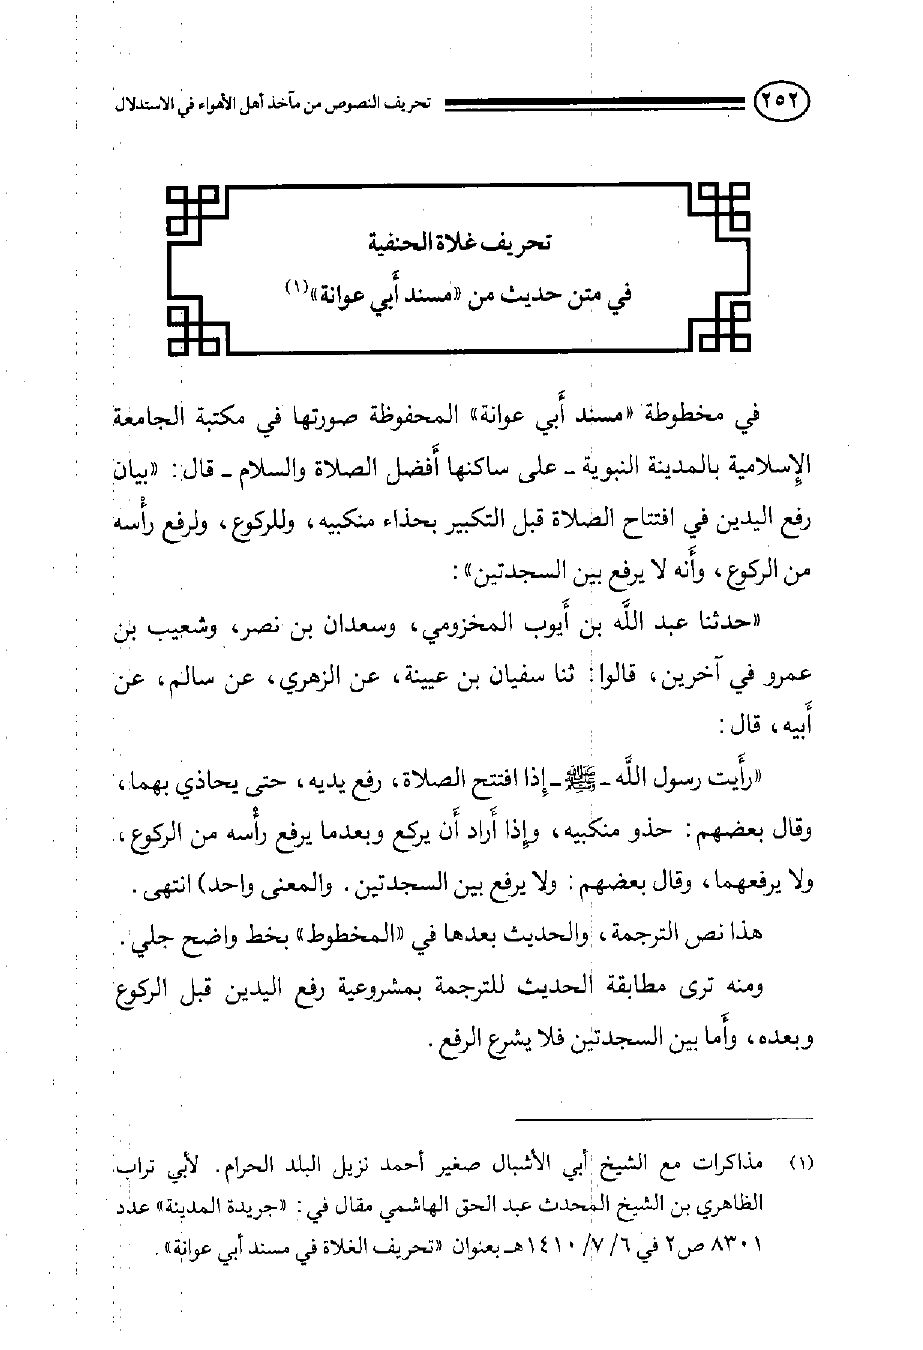 ٢٥٢ تحريف النصوص من مآخذ أهل الأهواء في الاستدلال
تحريف غلاة الحنفية
في متن حديث من «مسند أبي عوانة»(١)
في مخطوطة «مسند أَبي عوانة» المحفوظة صورتها في مكتبة الجامعة
الإِسلامية بالمدينة النبوية ـ على ساكنها أَفضل الصلاة والسلام ـ قال: «بيان
رفع اليدين في افتتاح الصلاة قبل التكبير بحذاء منكبيه، وللركوع، ولرفع رأْسه
من الركوع، وأَنه لا يرفع بين السجدتين»:
«حدثنا عبد اللَّه بن أَيوب المخزومي، وسعدان بن نصر، وشعيب بن
عمرو في آخرين، قالوا: ثنا سفيان بن عيينة، عن الزهري، عن سالم، عن
أَبيه، قال:
«رأَيت رسول اللَّه ـ ﷺ ـ إِذا افتتح الصلاة، رفع يديه، حتى يحاذي بهما،
وقال بعضهم: حذو منكبيه، وإِذا أَراد أَن يركع وبعدما يرفع رأْسه من الركوع،
ولا يرفعهما، وقال بعضهم: ولا يرفع بين السجدتين. والمعنى واحد) انتهى.
هذا نص الترجمة، والحديث بعدها في «المخطوط» بخط واضح جلي.
ومنه ترى مطابقة الحديث للترجمة بمشروعية رفع اليدين قبل الركوع
وبعده، وأَما بين السجدتين فلا يشرع الرفع.
(١) مذاكرات مع الشيخ أبي الأشبال صغير أحمد نزيل البلد الحرام. لأبي تراب
الظاهري بن الشيخ المحدث عبد الحق الهاشمي مقال في: «جريدة المدينة» عدد
٨٣٠١ ص٢ في ٦/ ٧/ ١٤١٠هـ بعنوان «تحريف الغلاة في مسند أبي عوانة».